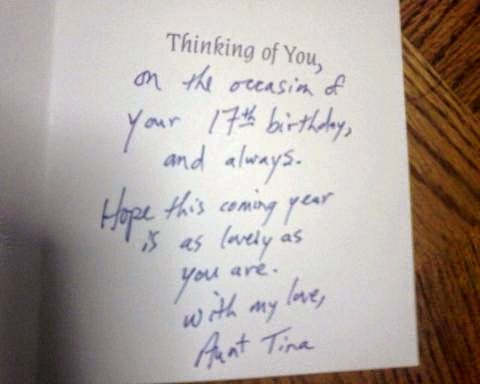 Thinking of You,
on the occasion of
your 17th birthday,
and always.
Hope this coming year
is as lovely as
you are.
with my love,
Aunt Tina